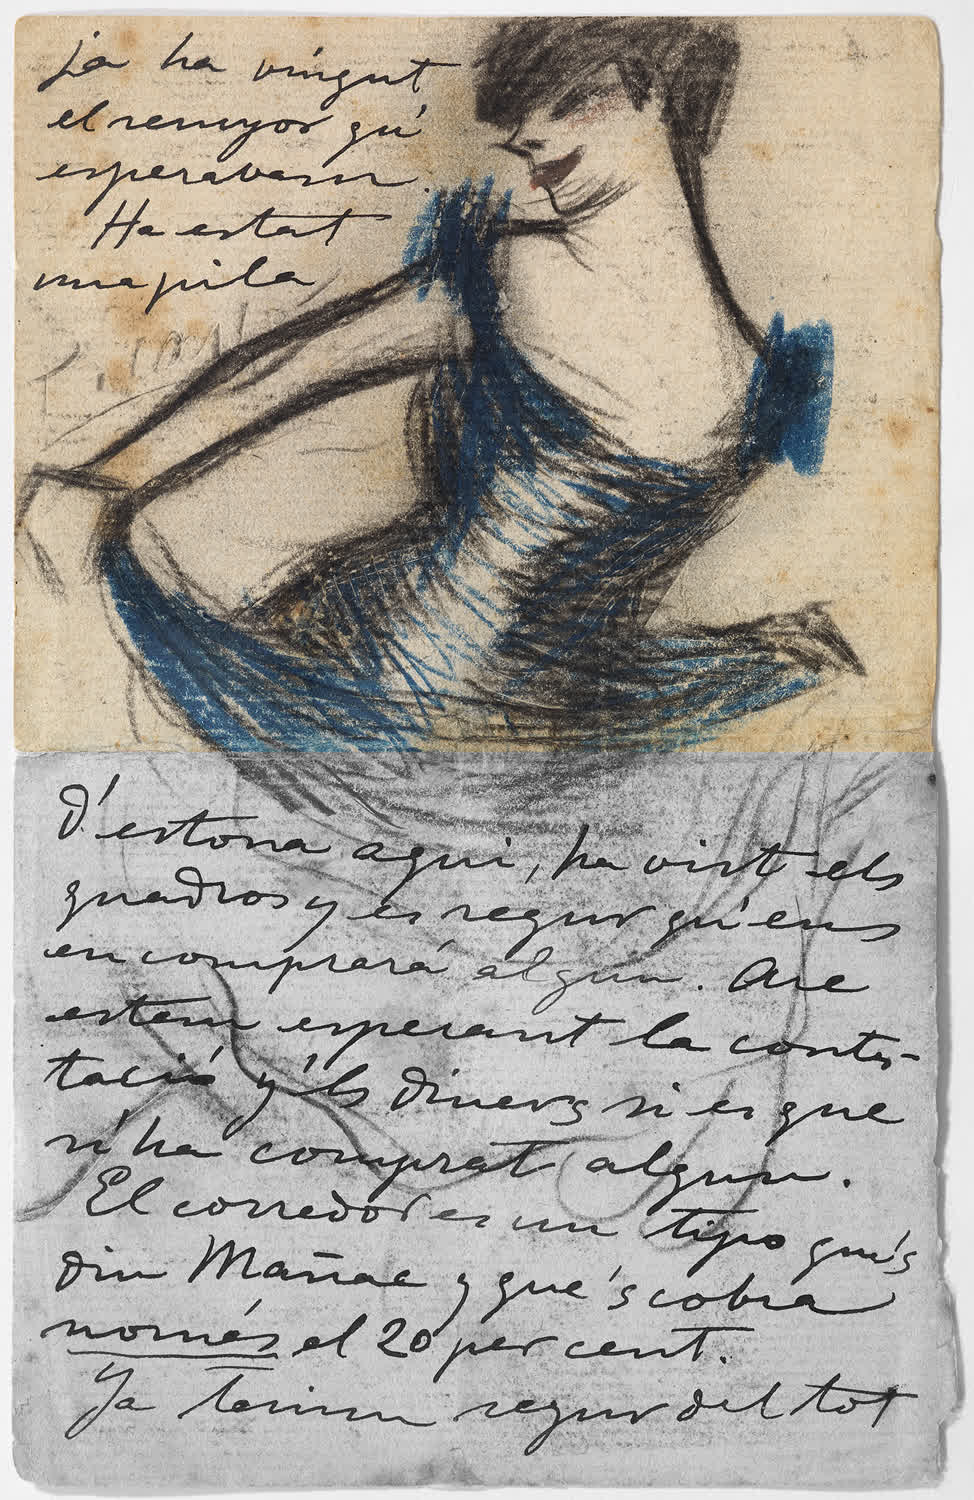 ja ha vingut
el senyor qu'
esperabam.
Ha estat
una pila
d'estona aqui, ha vist els
quadros y es segur qu'ens
en comprará algun. Are
estem esperant la contes-
tació y'ls diners si es que
n'ha comprat algun.
El corredor es un tipo qu'es
diu Mañac y que's cobra
només el 20 per cent.
Ja tenim segur del tot